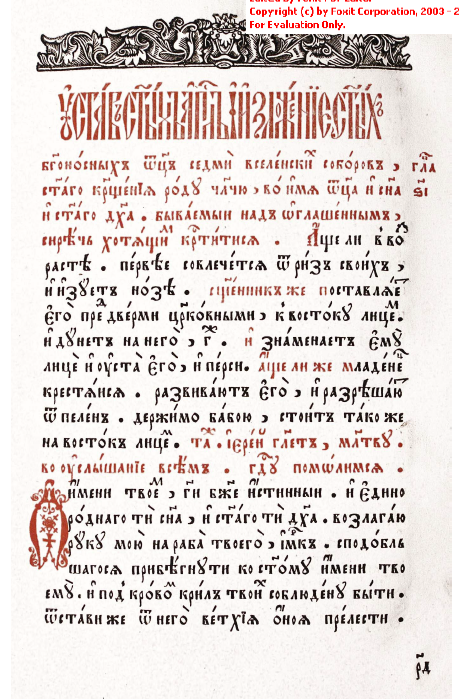 Copyright (c) by Foxit Corporation, 2003 - 2
For Evaluation Only.
бг҃оно́сныхъ ѿц҃ъ седмѝ вселе́нскиⷯ собо́ровъ, гла҃
ста́го крⷭ҇ще́нїѧ ро́дꙋ чл҃чю, во и҆́мѧ ѿц҃а и҆ сн҃а
и҆ ст҃а́го дх҃а. быва́емыи надъ ѡ҆глаше́ннымъ,
сирѣ́чь хотѧ́щиⷨ крⷭ҇ти́тисѧ. А҆́ще ли в во́
растѣ. пе́рвѣе совлече́тсѧ ѿ ри́зъ свои́хъ,
и҆ и҆зꙋ́етъ но́зѣ. сщ҃е́нникъ же поставлѧ́еⷮ
є҆го̀ преⷣ две́рми цр҃ко́вными, к восто́кꙋ лице́ⷨ.
и҆ дꙋ́нетъ на него̀, г҃. и҆ зна́менаетъ є҆мꙋ̀
лицѐ и҆ ᲂу҆ста̀ є҆го̀, и҆ пе́рси. А҆́ще ли же младе́неⷰ
крестѧ́йсѧ. развива́ютъ є҆го̀, и҆ разрѣша́ю
ѿ пеле́нъ. держи́мо ба́бою, стои́тъ та́ко же
на восто́къ лице́ⷨ. та́ⷤ. і҆ере́й гл҃етъ, мл҃твꙋ.
во ᲂу҆слы́шанїе всѣ́мъ. гдⷭ҇ꙋ помо́лимсѧ.
О҆ и҆́мени твое́ⷨ, гдⷭ҇и бж҃е и҆́стинныи. и҆ є҆ди́но
ро́днаго тѝ сн҃а, и҆ ст҃а́го тѝ дх҃а. возлага́ю
рꙋ́кꙋ мою̀ на раба̀ твоего̀, і҆́мкъ. сподо́бль
шагосѧ прибѣ́гнꙋти ко ст҃о́мꙋ и҆́мени тво
емꙋ̀. и҆ под̾ кро́воⷨ кри́лъ твои́ⷯ соблюде́нꙋ бы́ти.
ѿста́ви же ѿ него̀ ве́тхїѧ ѻ҆́ноѧ пре́лести.
р҃д